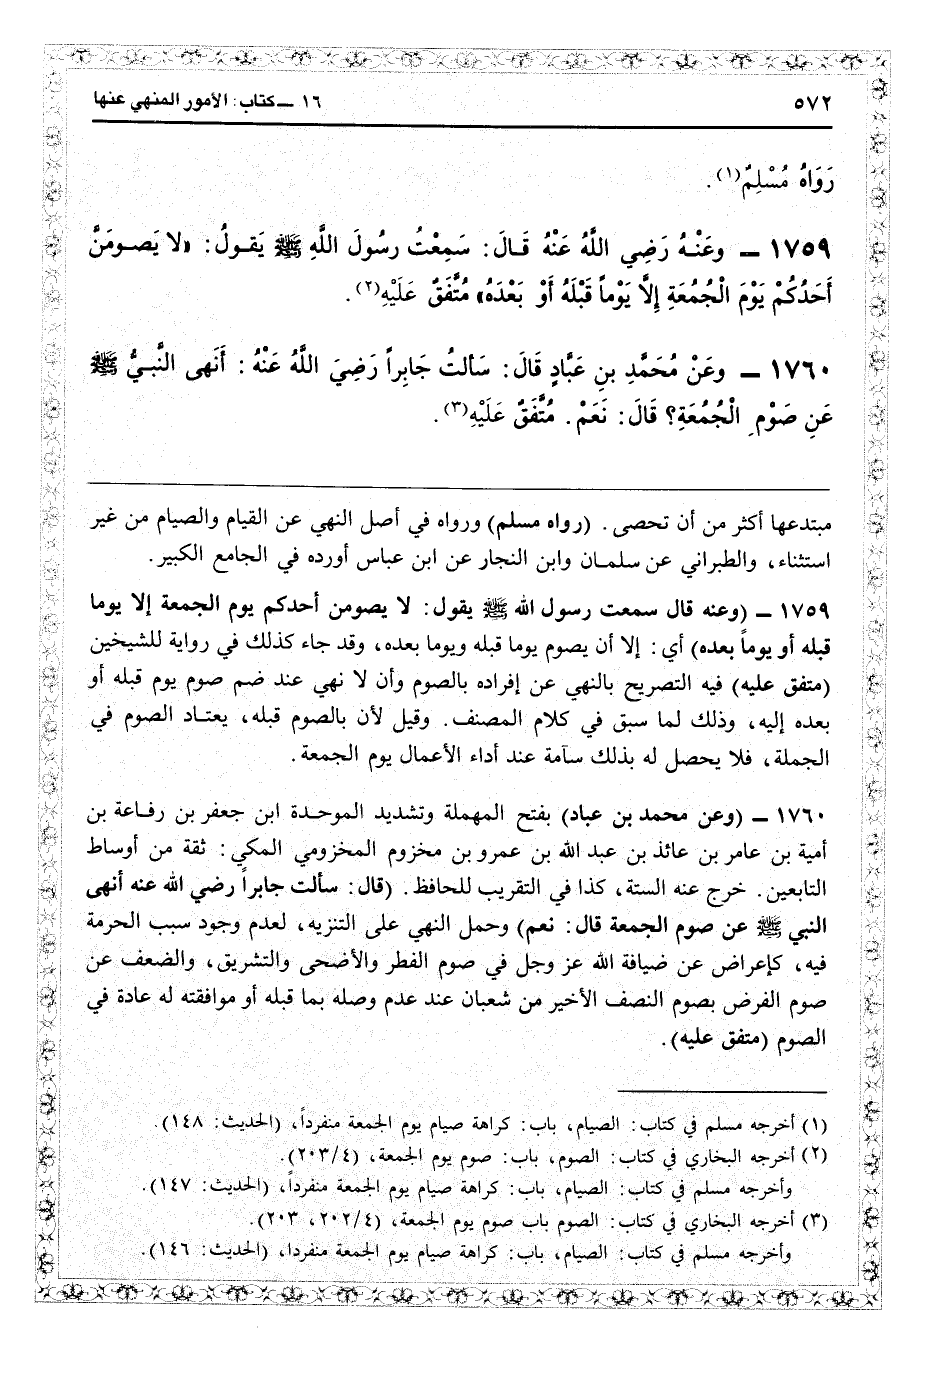 ٥٧٢ ١٦ ــ كتاب: الأمور المنهي عنها
رَوَاهُ مُسْلِمٌ(١).
١٧٥٩ ــ وعَنْـهُ رَضِي اللَّهُ عَنْهُ قَـالَ: سَمِعْتُ رسُولَ اللَّهِ ﷺ يَقـولُ: «لا يَصـومَنَّ
أَحَدُكُمْ يَوْمَ الْجُمُعَةِ إِلَّا يَوْماً قَبْلَهُ أَوْ بَعْدَهُ» مُتَّفَقٌ عَلَيْهِ(٢).
١٧٦٠ ــ وعَنْ مُحَمَّدِ بنِ عَبَّادٍ قَالَ: سَألتُ جَابِراً رَضِيَ اللَّهُ عَنْهُ: أَنَهى النَّبـيُّ ﷺ
عَنِ صَوْمِ الْجُمُعَةِ؟ قَالَ: نَعَمْ. مُتَّفَقٌ عَلَيْهِ(٣).
مبتدعها أكثر من أن تحصى. (رواه مسلم) ورواه في أصل النهي عن القيام والصيام من غير
استثناء، والطبراني عن سلمـان وابن النجار عن ابن عباس أورده في الجامع الكبير.
١٧٥٩ ــ (وعنه قال سمعت رسول الله ﷺ يقول: لا يصومن أحدكم يوم الجمعة إلا يوما
قبله أو يوماً بعده) أي: إلا أن يصوم يوما قبله ويوما بعده، وقد جاء كذلك في رواية للشيخين
(متفق عليه) فيه التصريح بالنهي عن إفراده بالصوم وأن لا نهي عند ضم صوم يوم قبله أو
بعده إليه، وذلك لما سبق في كلام المصنف. وقيل لأن بالصوم قبله، يعتـاد الصوم في
الجملة، فلا يحصل له بذلك سآمة عند أداء الأعمال يوم الجمعة.
١٧٦٠ ــ (وعن محمد بن عباد) بفتح المهملة وتشديد الموحـدة ابن جعفر بن رفـاعة بن
أمية بن عامر بن عائذ بن عبد الله بن عمرو بن مخزوم المخزومي المكي: ثقة من أوساط
التابعين. خرج عنه الستة، كذا في التقريب للحافظ. (قال: سألت جابراً رضي الله عنه أنهى
النبي ﷺ عن صوم الجمعة قال: نعم) وحمل النهي على التنزيه، لعدم وجود سبب الحرمة
فيه، كإعراض عن ضيافة الله عز وجل في صوم الفطر والأضحى والتشريق، والضعف عن
صوم الفرض بصوم النصف الأخير من شعبان عند عدم وصله بما قبله أو موافقته له عادة في
الصوم (متفق عليه).
(١) أخرجه مسلم في كتاب: الصيام، باب: كراهة صيام يوم الجمعة منفرداً، (الحديث: ١٤٨).
(٢) أخرجه البخاري في كتاب: الصوم، باب: صوم يوم الجمعة، (٢٠٣/٤).
وأخرجه مسلم في كتاب: الصيام، باب: كراهة صيام يوم الجمعة منفرداً، (الحديث: ١٤٧).
(٣) أخرجه البخاري في كتاب: الصوم باب صوم يوم الجمعة، (٢٠٢/٤، ٢٠٣).
وأخرجه مسلم في كتاب: الصيام، باب: كراهة صيام يوم الجمعة منفردا، (الحديث: ١٤٦).